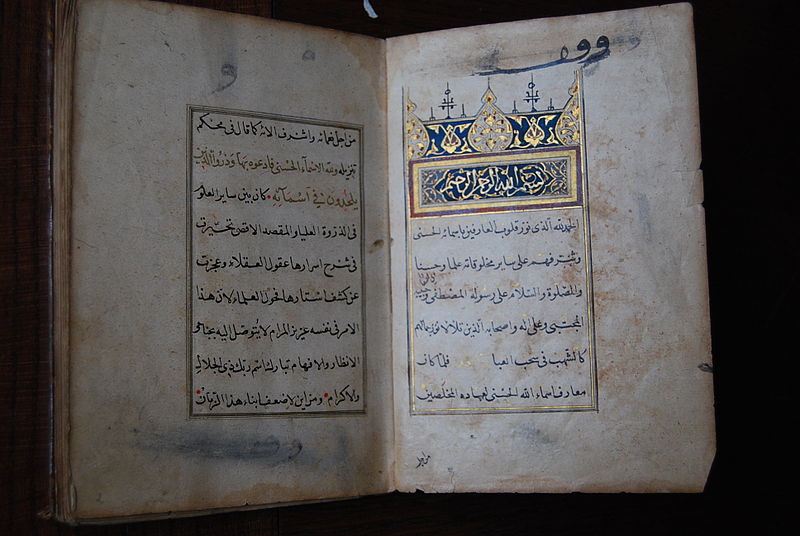 وقف
بسم الله الرحمن الرحيم
الحمد لله الذى نور قلوب العارفين باسمائه الحسنى
وشرفهم على ساير مخلوقاته علما وحسنا
والصلوة والسلام على رسوله المصطفى
المجتبى وعلى اله واصحابه الذين تلألأ نور جمالهم
كالشهب فى سحب العبا فلما كان
معارف اسماء الله الحسنى لعباده المخلصين
من اجل
من اجل نعمائه واشرف الائه كما قال فى محكم
تنزيله ولله الاسماء الحسنى فادعوه بها وذروا الذين
يلحدون في اسمائه كان بين ساير العلو
فى الذروة العليا والمقصد الاقصى تحيرت
فى شرح اسرارها عقول العقلاء وعجزت
عن كشف استارها فحول العلماء لان هذا
الامر فى نفسه عزيز المرام لا يتوصل اليه بخيا
الانظار والافهام تبارك اسم ربك ذى الجلال
والاكرام ومن اين لاضعف ابناء هذا الزمان